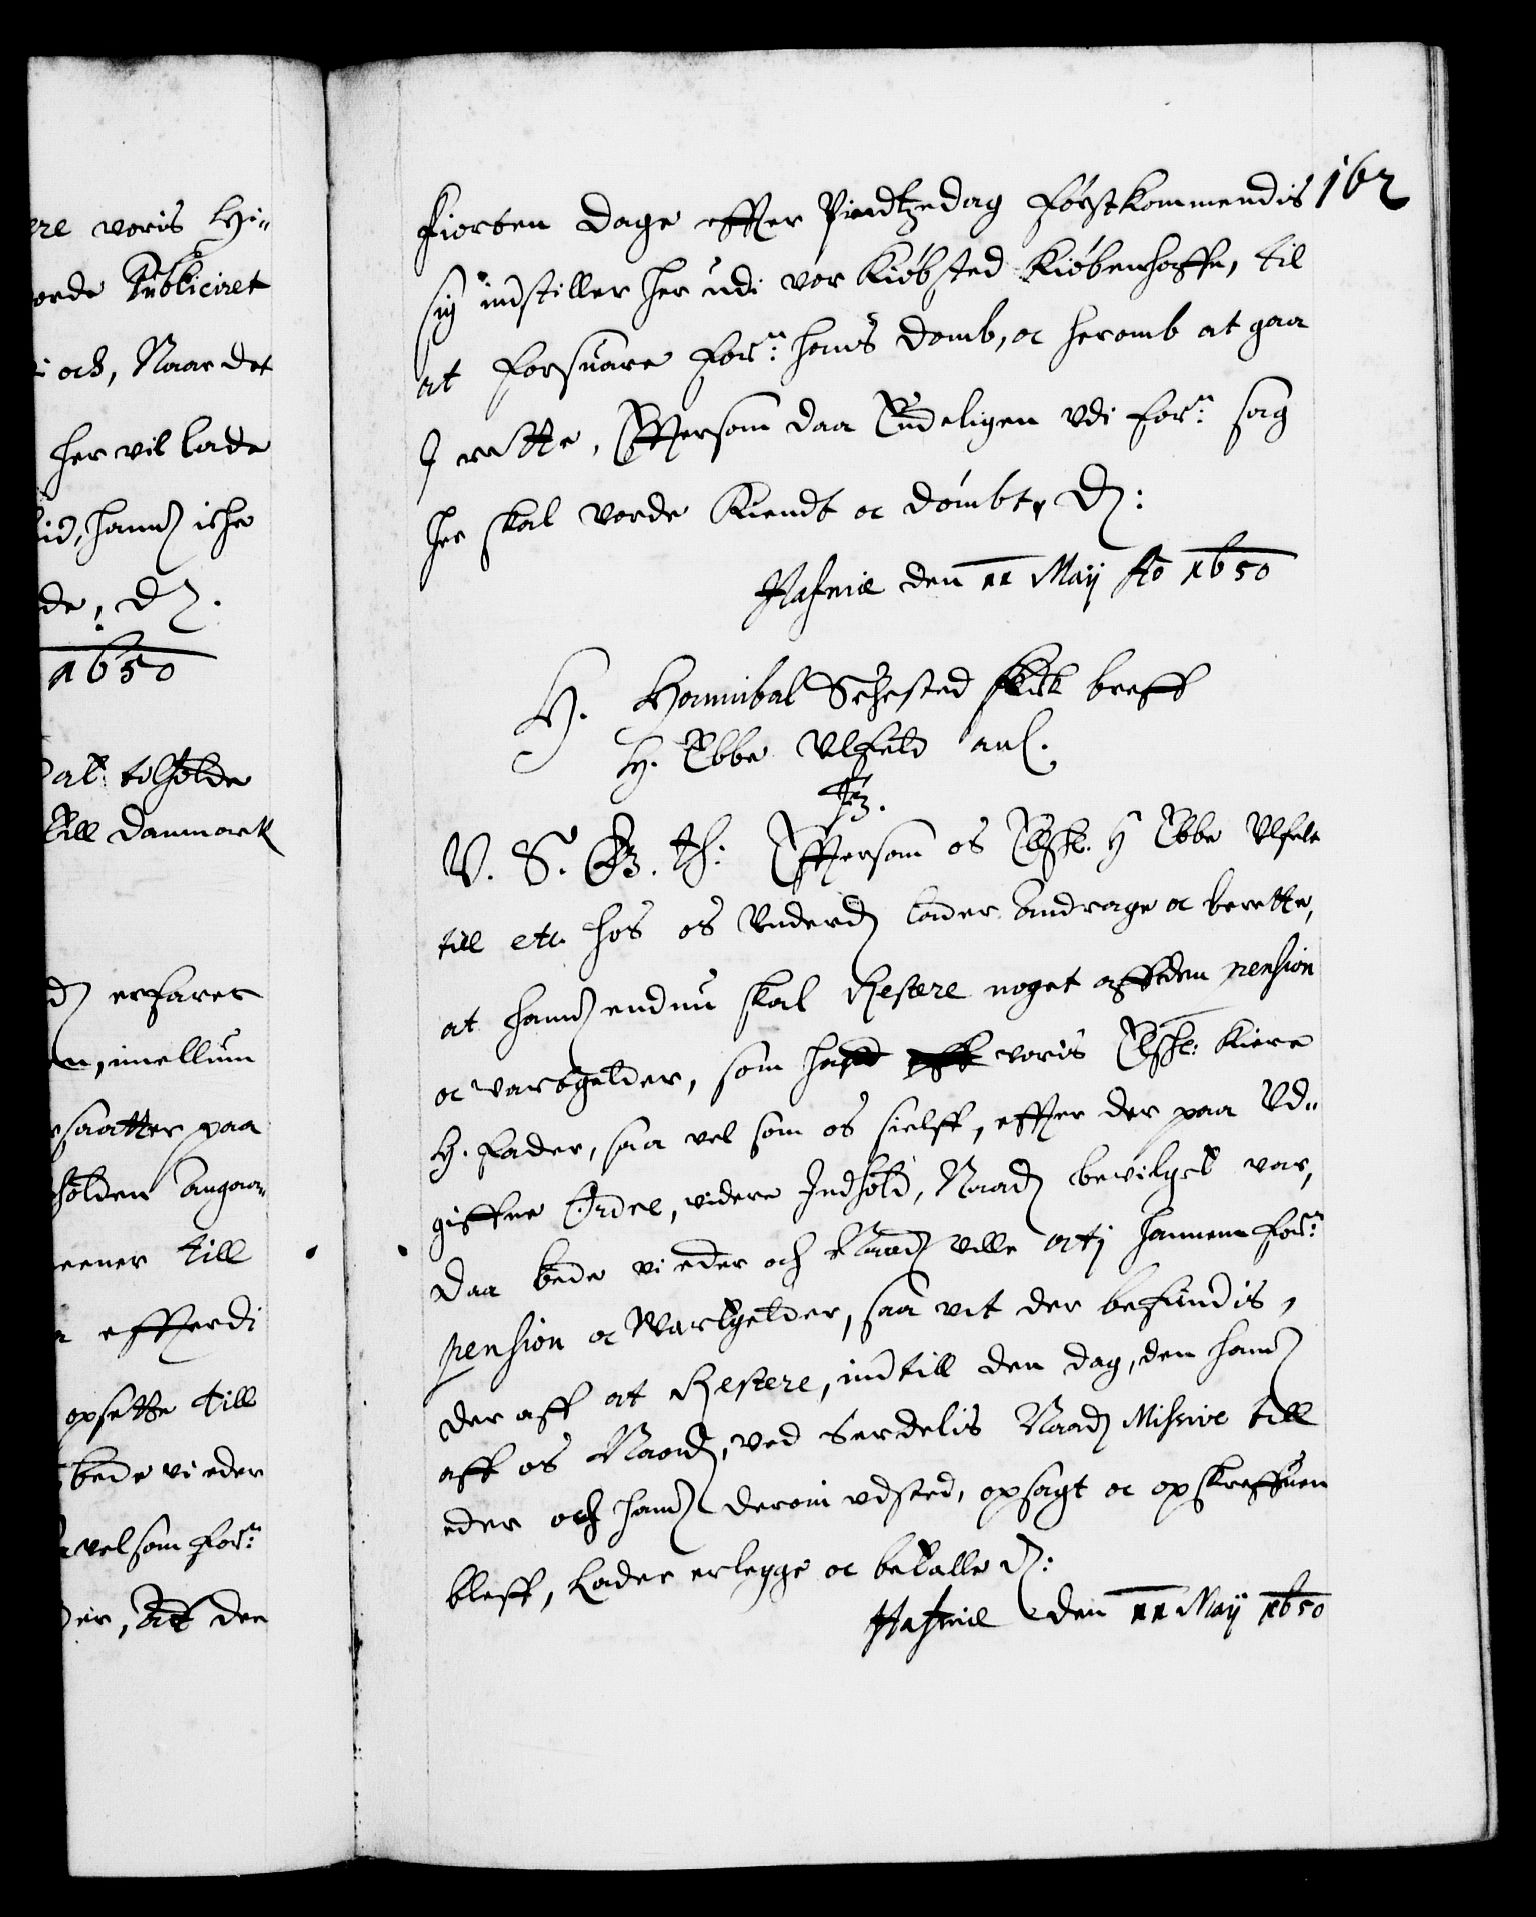 ere voris Hi-
orde Publiciret
i och, Naar det
her vil lade
id, hand iche
de, D.
1650
Dal: til holde
till Danmark
d erfaret
n, imellum
saatter paa
holden angaa-
eener till
efftterdi
opsette till
bede vi eder
vel som for:ne
der, At den
162
Fiorten dage effter Pindtzedag førstkommendis
sig indstiller her udi vor Kiøbsted Kiøbenhaffn, til
at forsuare for:ne hans domb, oc heromb at gaa
I rette, Effttersom daa Endeligen udi for:ne sag
her skal vorde kiendt oc dømbt, D:
Hafniæ den 11 Maij Ao 1650
H. Hannibal Sehested fick breff
H. Ebbe Ulfeld anl.
F3.
V. S. G. t: Effttersom os Elskl. H Ebbe Ulfeld
till etc. hos os Underd lader andrage oc berette,
at hand endnu skal Restere noget aff den pension
oc vartgelder, som hand voris Elskl: kiere
H. fader, saa vel som os sielff, effter der paa Ud-
giffne Ordre, videre Indhold, Naad bevilget var,
Daa bede vi eder och Naad ville at i hannem for:ne
pension oc Wartgelder, saa vit der befindis,
der aff at Restere, indtill den dag, den hand
aff os Naad, ved serdelis Naad Missive till
eder och hand derom udsted, opsagt oc opskreffuen
bleff, Lader erlegge oc betalle D:
Hafniæ den 11 Maij 1650